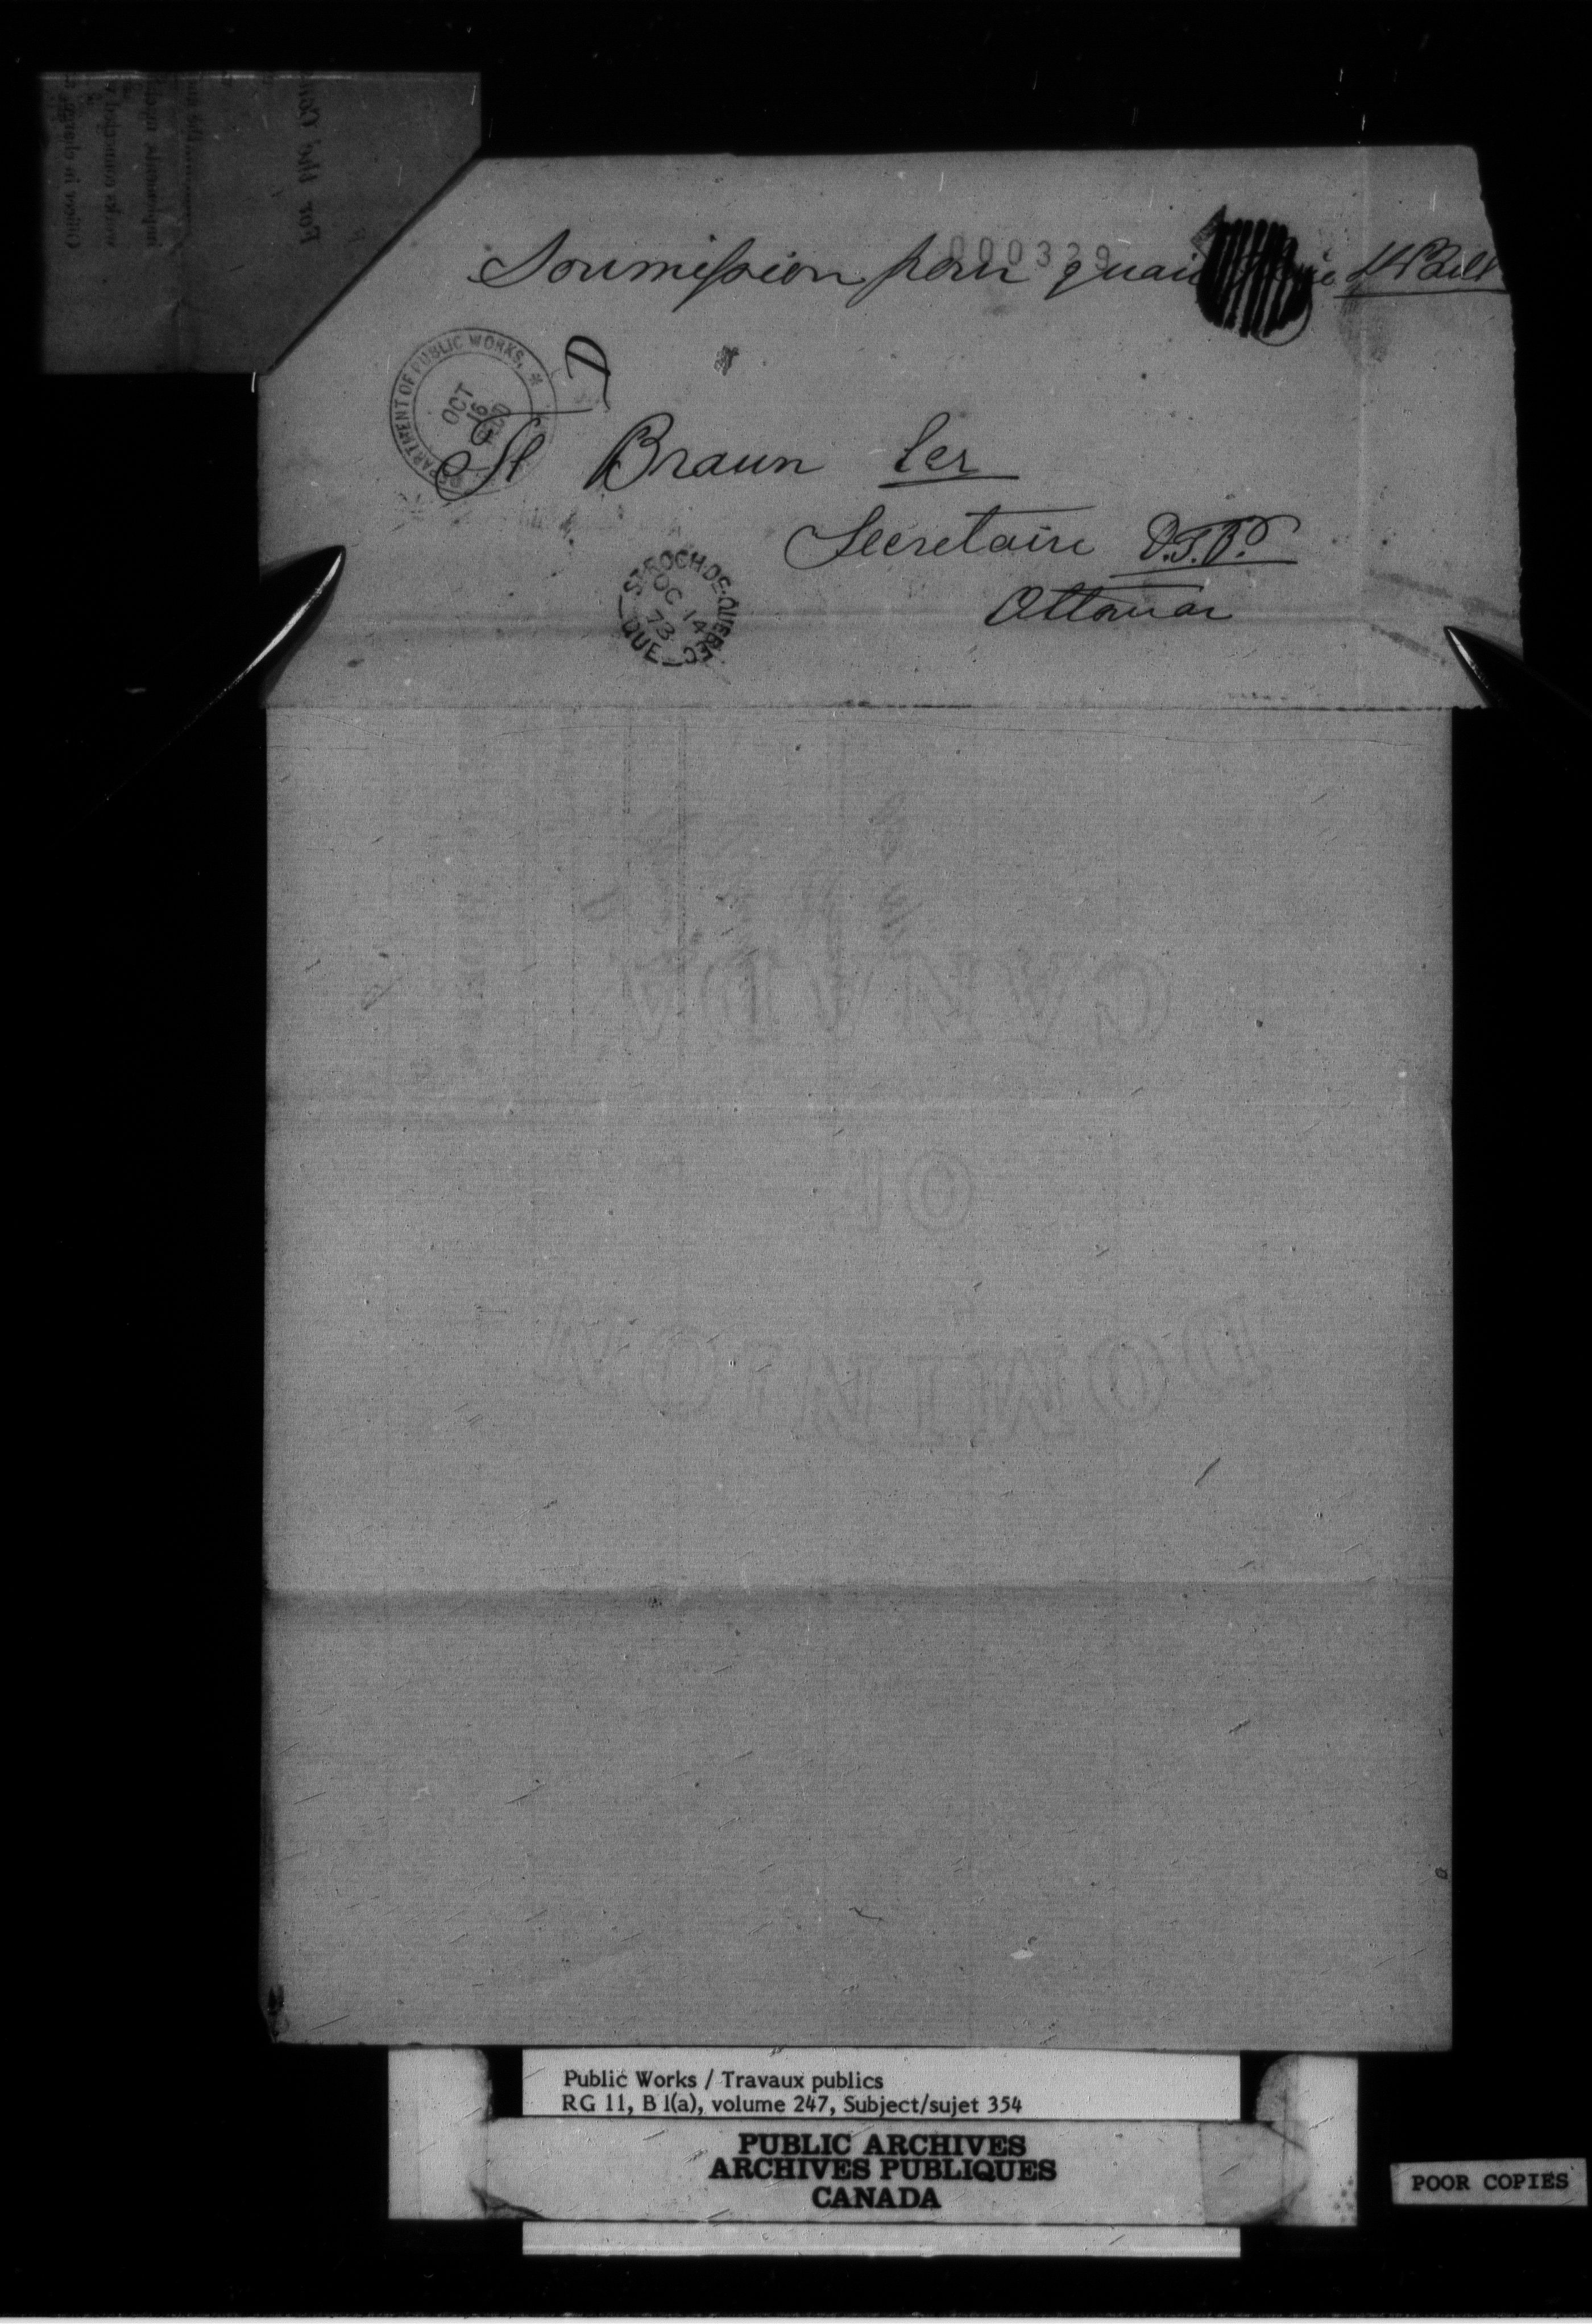 For the
000339
Soumission pour quai
DEPARTMENT OF PUBLIC WORKS,
OCT
16
D
Braun Ser
Secretaire D.T.P.
Ottawa
ST-ROCH-DE-QUEBEC
OC 14
73
QUE
CANADA
OF
DOMINION
Public Works / Travaux publics
RG 11, B 1(a), volume 247, Subject/sujet 354
PUBLIC ARCHIVES
ARCHIVES PUBLIQUES
CANADA
POOR COPIES